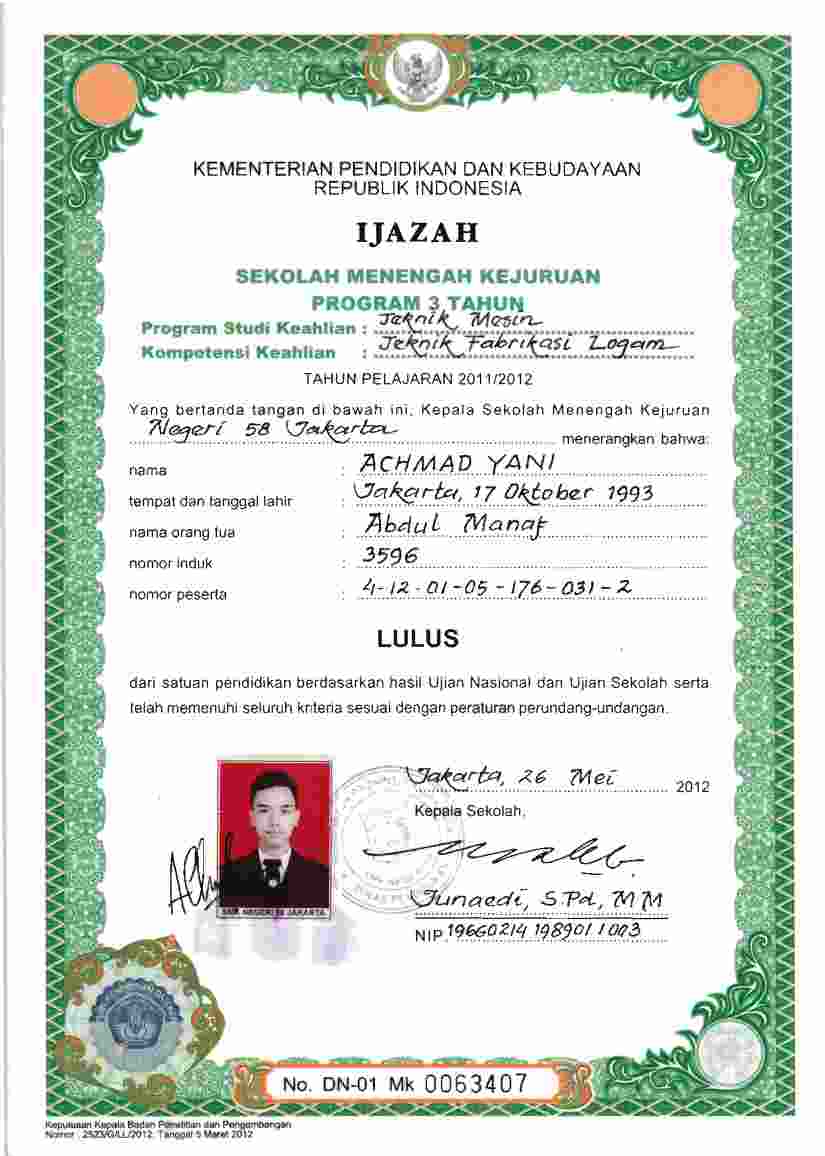 KEMENTERIAN PENDIDIKAN DAN KEBUDAYAAN
REPUBLIK INDONESIA
IJAZAH
SEKOLAH MENENGAH KEJURUAN
PROGRAM 3 TAHUN
Program Studi Keahlian : Teknik Mesin
Kompetensi Keahlian : Teknik Fabrikasi Logam
TAHUN PELAJARAN 2011/2012
Yang bertanda tangan di bawah ini, Kepala Sekolah Menengah Kejuruan
Negeri 58 Jakarta menerangkan bahwa:
nama : ACHMAD YANI
tempat dan tanggal lahir : Jakarta, 17 Oktober 1993
nama orang tua : Abdul Manaf
nomor induk : 3596
nomor peserta : 4-12-01-05-176-031-2
LULUS
dari satuan pendidikan berdasarkan hasil Ujian Nasional dan Ujian Sekolah serta
telah memenuhi seluruh kriteria sesuai dengan peraturan perundang-undangan.
Jakarta, 26 Mei 2012
Kepala Sekolah,
SMK NEGERI 58 JAKARTA
Junaedi, S.Pd, MM
NIP. 19660214 198901 1 003
No. DN-01 Mk 0063407
Keputusan Kepala Badan Penelitian dan Pengembangan
Nomor : 2523/G/LL/2012, Tanggal 5 Maret 2012